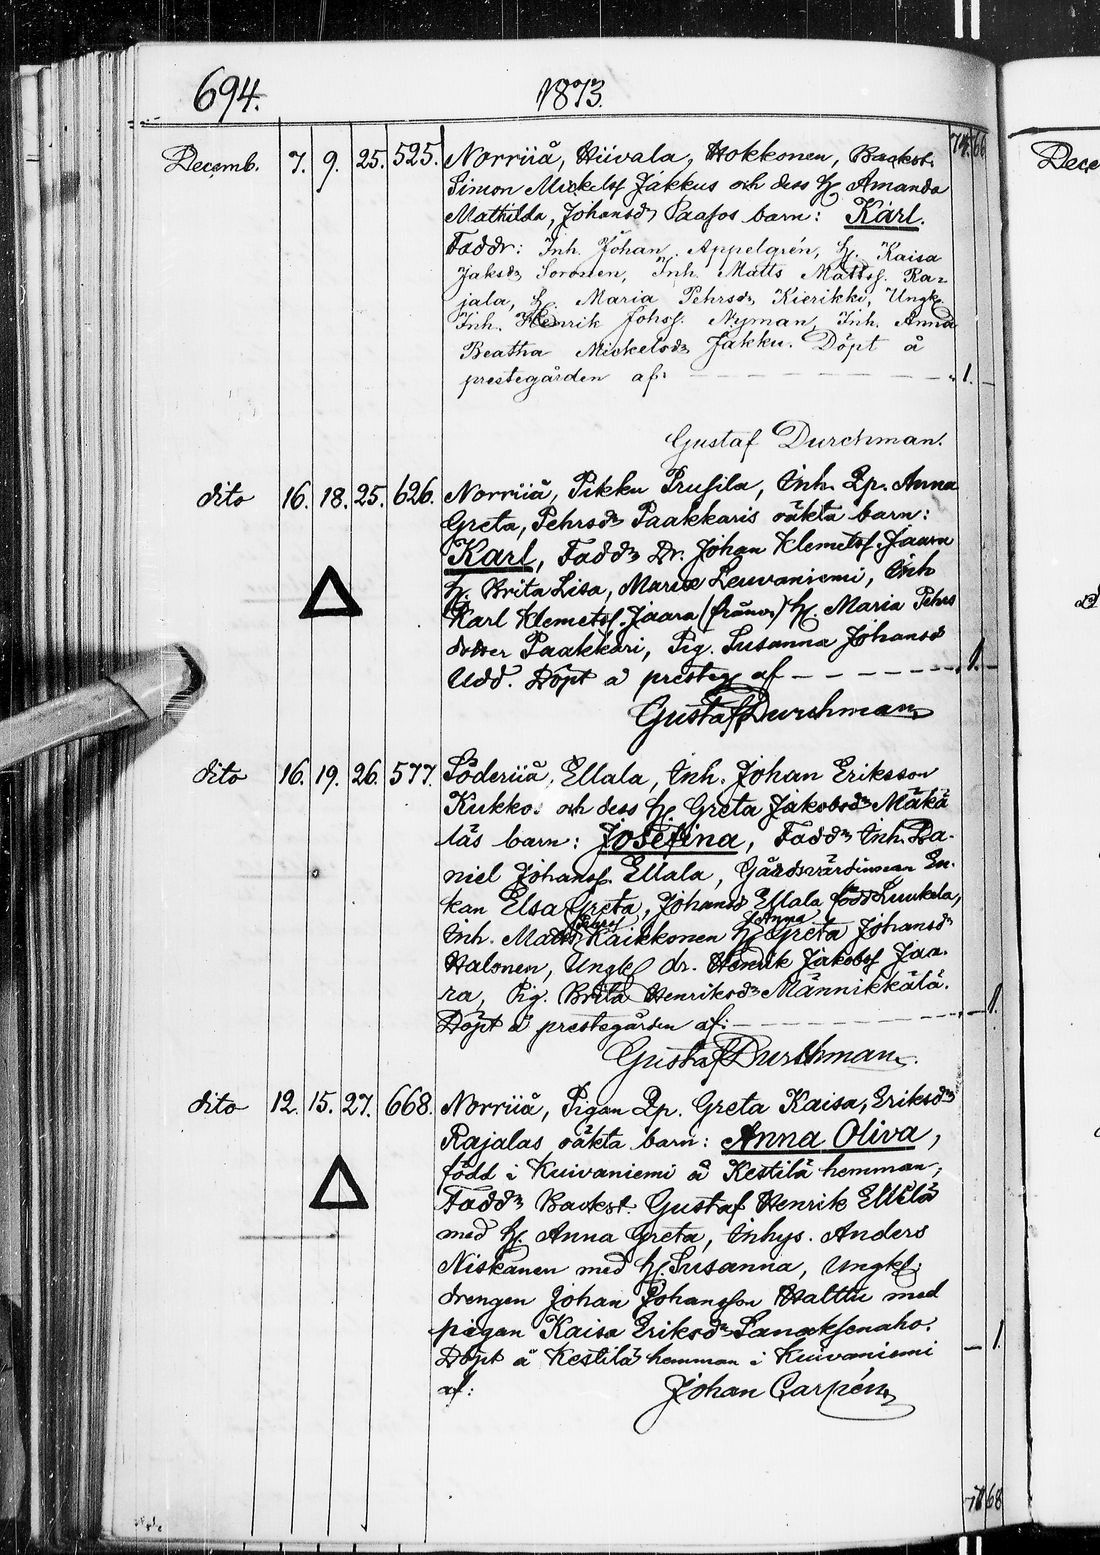 694. 1873.
74. 66
Decemb. 7. 9. 25. 525. Norriiå, Hiivala, Hokkonen, Backst.
Simon Mickelsf Jakkus och dess H. Amanda
Mathilda, Johansdr Paasos barn: Karl.
Faddr: Inh. Johan Appelgrén, H. Kaisa
Jaksdr Soronen, Inh. Matts Mattsf. Ra-
jala, H. Maria Pehrsdr Kierikki, Ungk.
Inh. Henrik Johsf. Nyman, Inh. Anna
Beatha Mickelsdr Jakku. Döpt å
prestegården af: 1.
Gustaf Durchman.
dito 16. 18. 25. 626. Norriiå, Pikku Prusila, Inh. Qp. Anna
Greta, Pehrsdr Paakkaris oäkta barn:
Karl, Faddr Dr. Johan Klemetsf. Jaara
H. Brita Lisa, Leuvaniemi, Inh
Karl Klemetsf. Jaara H. Maria Pehrs
dotter Paakkari, Pig. Susanna Johansd
Udd. Döpt å presteg af 1.
Gustaf Durchman
dito 16. 19. 26. 577. Söderiiå, Ellala, Inh. Johan Eriksson
Kukko. och dess H. Greta Jakobsdr Mäkä
läs barn: Josefina, Faddr Inh. Da-
niel Johansf. Ellala, Gårdsvärdinnan En-
kan Elsa Greta, Johansd Ellala född Luukela,
Inh. Matts Kaikkonen H. Anna Greta Johansdr
Halonen, Ungk dr. Henrik Jakobsf Jaa-
ra, Pig. Brita Henriksdr Männikkälä.
Döpt å prestegården af: 1.
Gustaf Durchman.
dito 12. 15. 27. 668. Norriiå, Pigan Qp. Greta Kaisa, Eriksdr
Rajalas oäkta barn: Anna Oliva,
född i Kuivaniemi å Kestilä hemman;
Faddr Backst. Gustaf Henrik Ellilä
med H. Anna Greta, Inhys. Anders
Niskanen med H. Susanna, Ungkl.
drengen Johan Johansson Halttu med
pigan Kaisa Eriksdr
Döpt å Kestilä hemman i Kuivaniemi 1.
af: Johan Carpén,
68